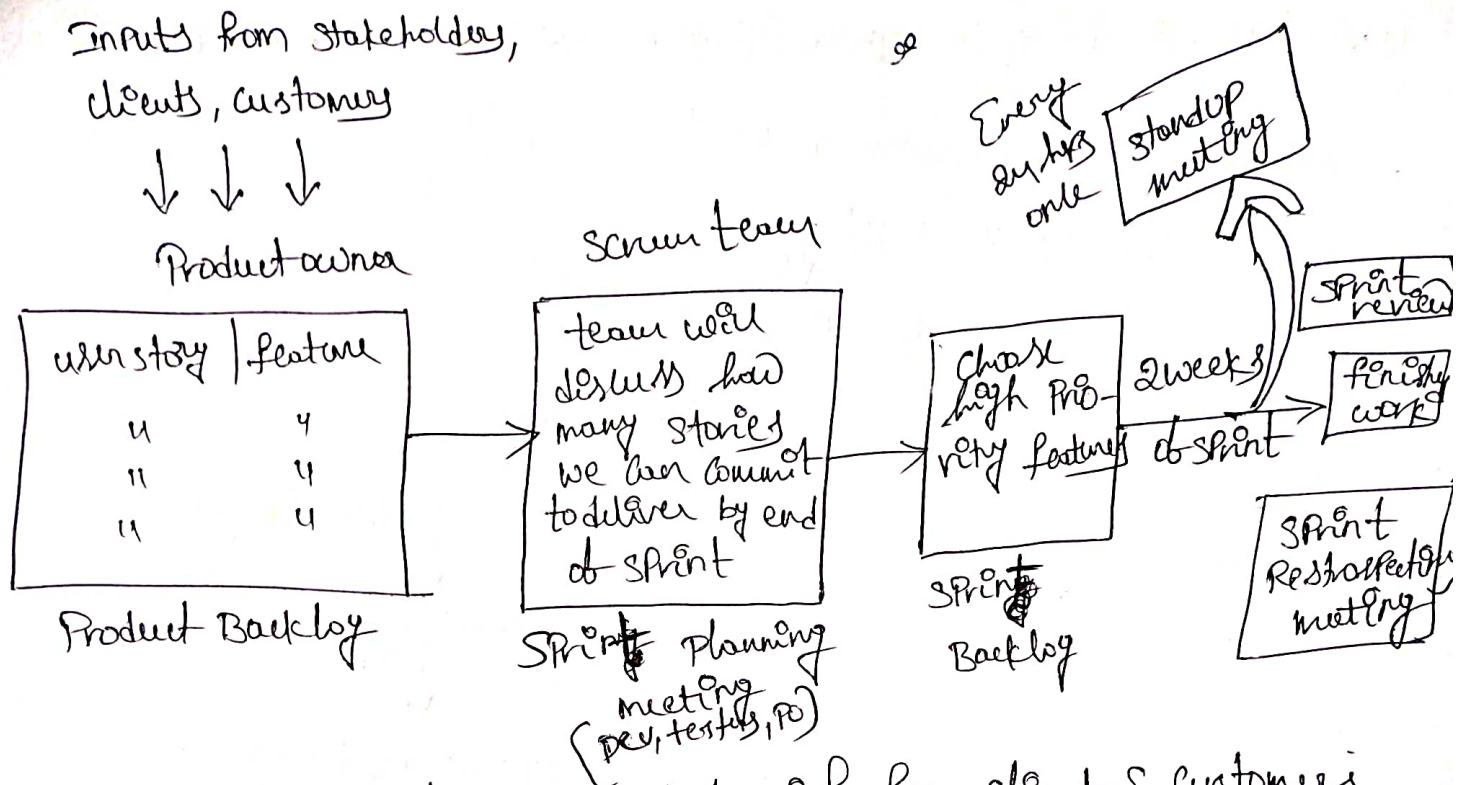 Inputs from stakeholders,
clients, customers
Product owner
user story | feature
" "
" "
" "
Product Backlog
Scrum team
team will
discuss how
many stories
we can commit
to deliver by end
of sprint
Sprint Planning
meeting
(Dev, testers, PO)
choose
high Prio-
rity features
Sprint
Backlog
2 weeks
of sprint
Every
24 hrs
once
standup
meeting
Sprint
review
finish
work
Sprint
Restrospection
meeting
customers